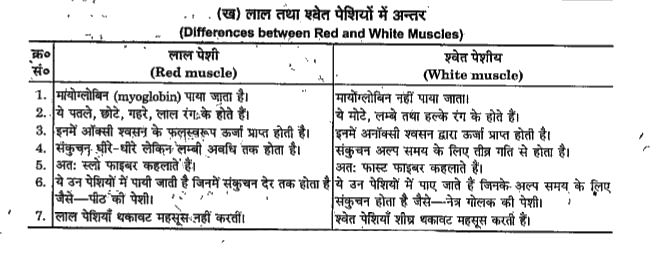 (ख) लाल तथा श्वेत पेशियों में अन्तर
(Differences between Red and White Muscles)
क्र० सं०
लाल पेशी
(Red muscle)
श्वेत पेशीय
(White muscle)
1. मांयोग्लोबिन (myoglobin) पाया जाता है।
मायोंग्लोबिन नहीं पाया जाता।
2. ये पतले, छोटे, गहरे, लाल रंग के होते हैं।
ये मोटे, लम्बे तथा हल्के रंग के होते हैं।
3. इनमें ऑक्सी श्वसन के फलस्वरूप ऊर्जा प्राप्त होती है।
इनमें अनॉक्सी श्वसन द्वारा ऊर्जा प्राप्त होती है।
4. संकुचन धीरे-धीरे लेकिन लम्बी अवधि तक होता है।
संकुचन अल्प समय के लिए तीव्र गति से होता है।
5. अतः स्लो फाइबर कहलाते हैं।
अतः फास्ट फाइबर कहलाते हैं।
6. ये उन पेशियों में पायी जाती है जिनमें संकुचन देर तक होता है
जैसे—पीठ की पेशी।
ये उन पेशियों में पाए जाते हैं जिनके अल्प समय के लिए
संकुचन होता है जैसे—नेत्र गोलक की पेशी।
7. लाल पेशियाँ थकावट महसूस नहीं करतीं।
श्वेत पेशियाँ शीघ्र थकावट महसूस करती हैं।